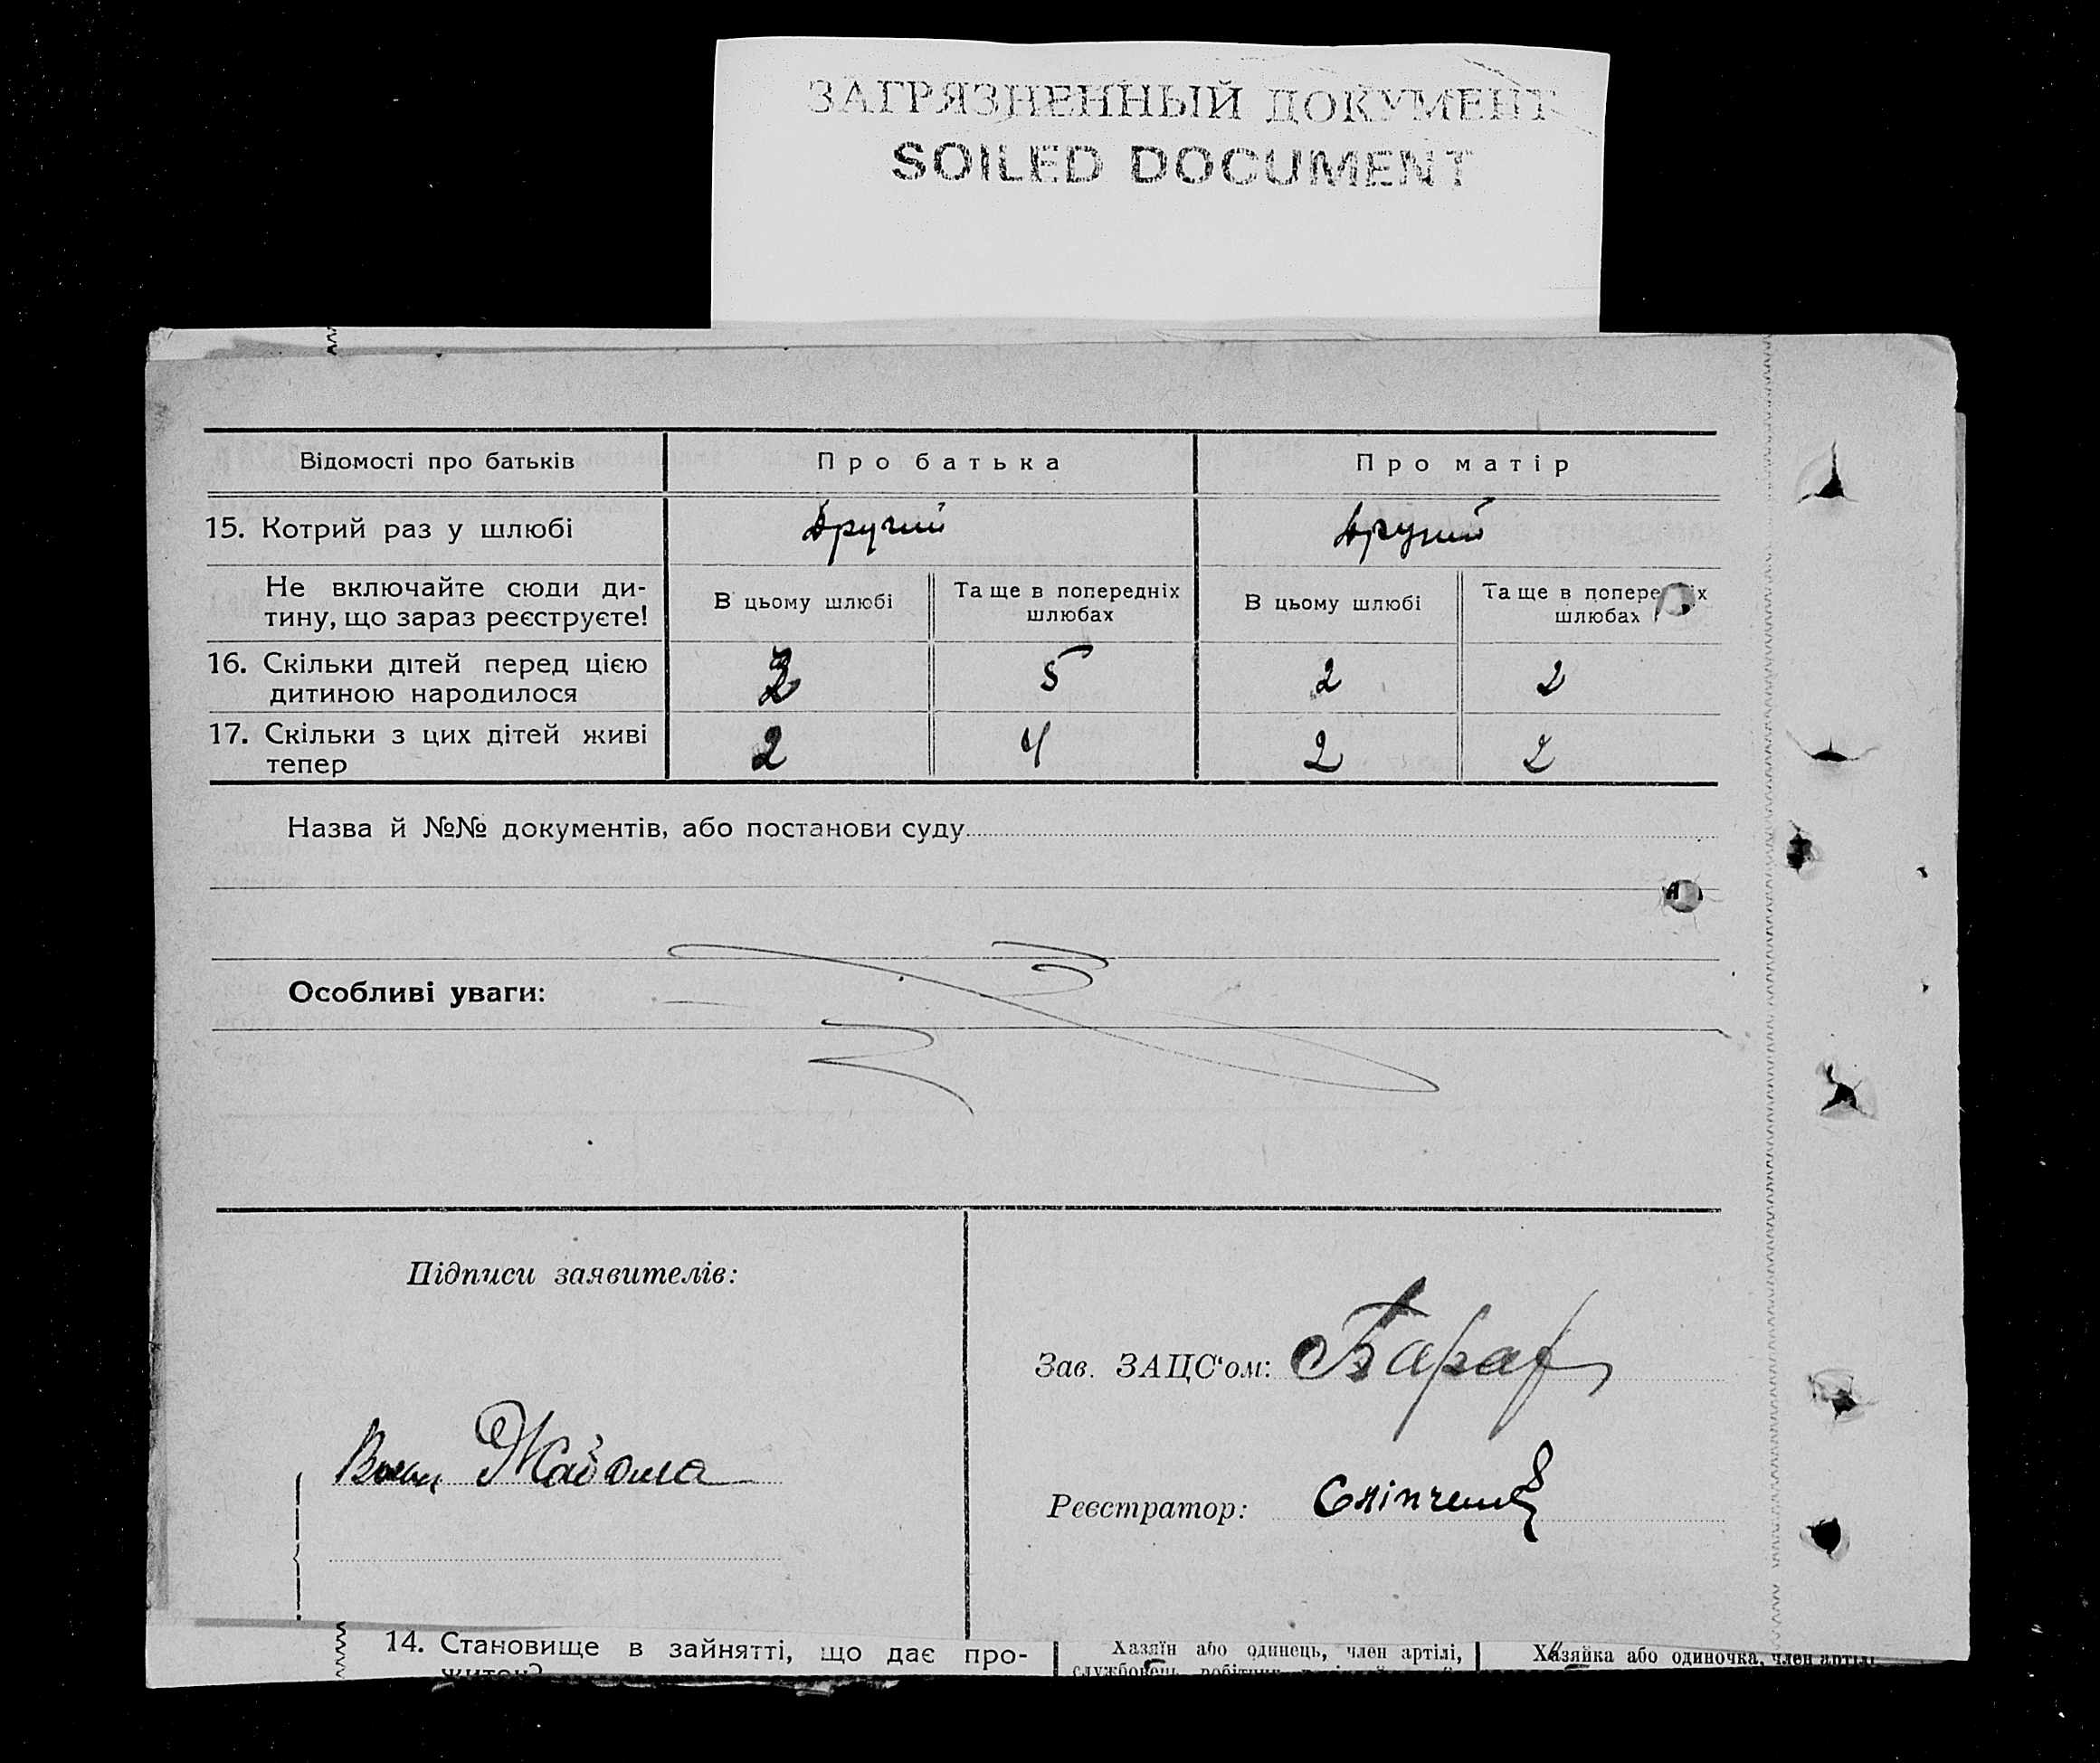 ЗАГРЯЗНЕННЫЙ ДОКУМЕНТ
SOILED DOCUMENT
Відомості про батьків Про батька Про матір
15. Котрий раз у шлюбі другий другий
Не включайте сюди ди-
тину, що зараз реєструєте!
В цьому шлюбі Та ще в попередніх шлюбах В цьому шлюбі Та ще в шлюбах
16. Скільки дітей перед цією
дитиною народилося 2 5 2 2
17. Скільки з цих дітей живі
тепер 2 4 2 2
Назва й №№ документів, або постанови суду
Особливі уваги:
Підписи заявителів:
Зав. ЗАЦС'ом:
Реєстратор:
14. Становище в зайнятті, що дає про-
Хазяїн або одинець, член артілі,
Хазяйка або одиночка, член артілі